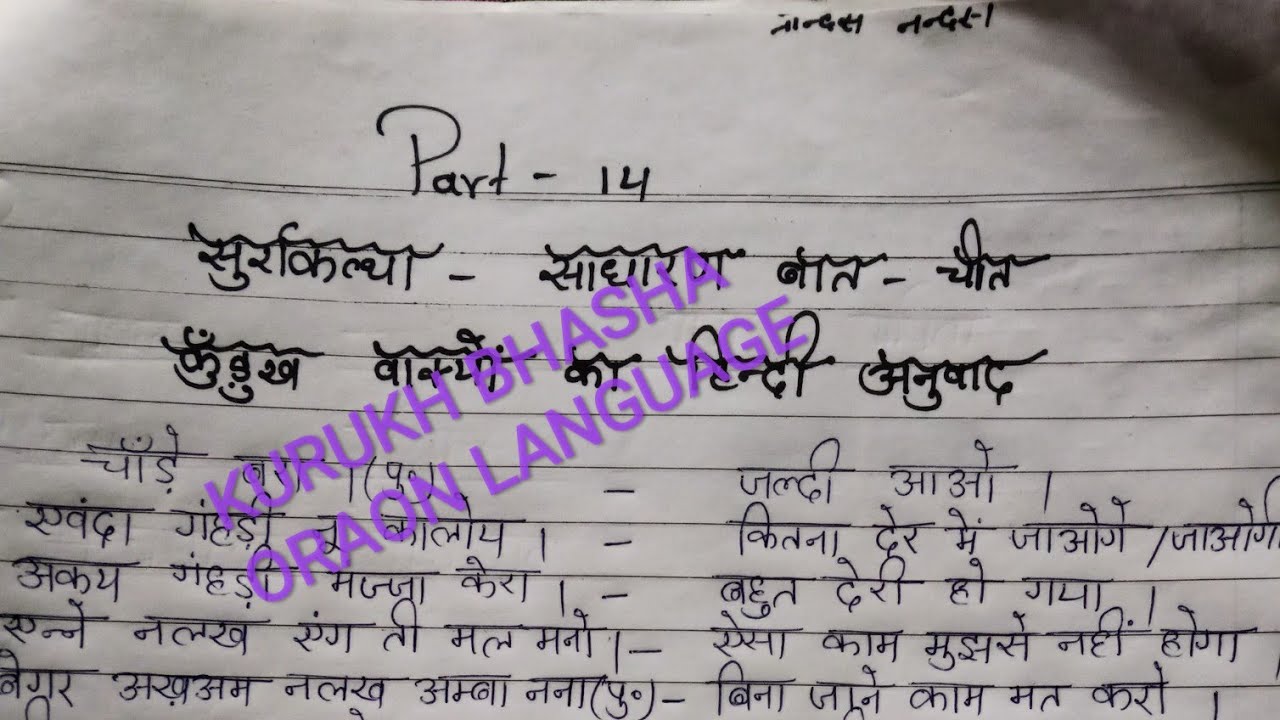 नान्दस नन्दस।
Part - 14
सुरकिल्या - साधारण बात - चीत
कुँड़ुख़ वाक्यों का हिन्दी अनुवाद
KURUKH BHASHA
ORAON LANGUAGE
चाँड़े (पु॰) - जल्दी आओ ।
एवंदा गंहड़ी नू कालोय । - कितना देर में जाओगे /जाओगी
अकय गंहड़ी मज्जा केरा । - बहुत देरी हो गया ।
एन्ने नलख एंग ती मल मनो । - ऐसा काम मुझसे नहीं होगा ।
बेगर अख़अम नलख़ अम्बा नना (पु॰) - बिना जाने काम मत करो ।